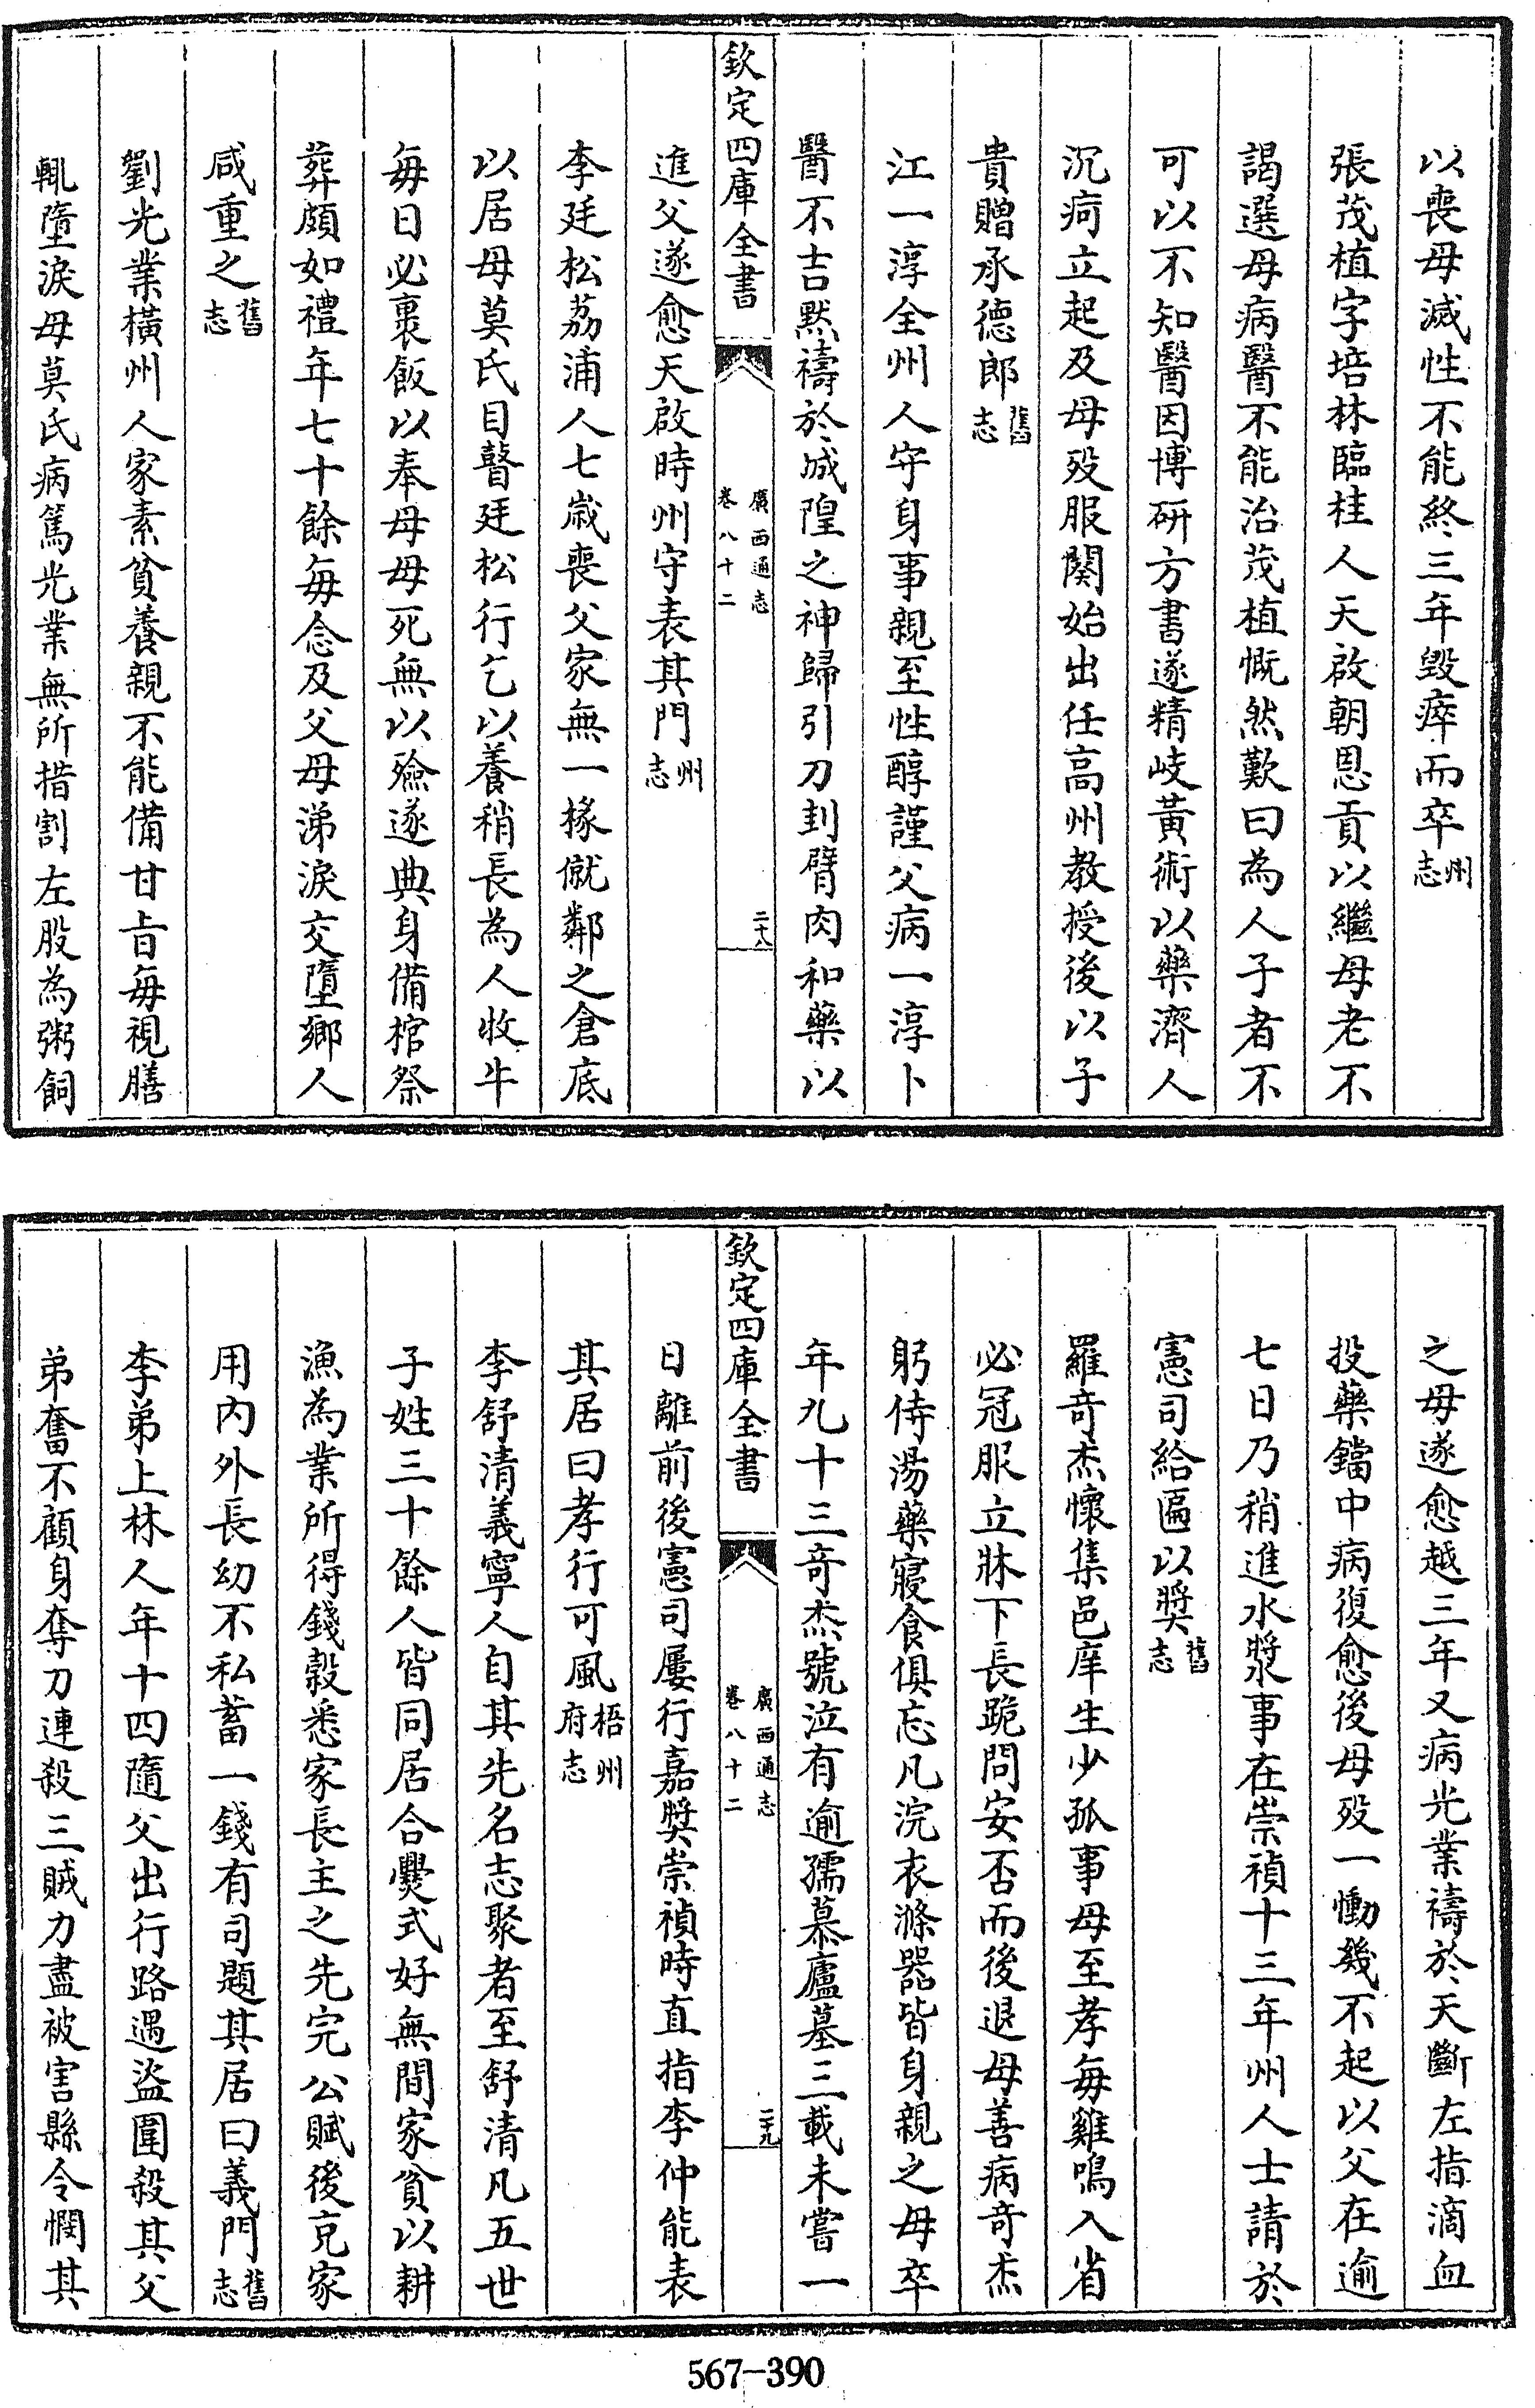 以喪母滅性不能終三年毀瘁而卒州志
張茂植字培林臨桂人天啟朝恩貢以繼母老不
謁選母病醫不能治茂植慨然歎曰為人子者不
可以不知醫因博研方書遂精岐黃術以藥濟人
沉疴立起及母歿服闋始出任高州教授後以子
貴贈承德郎舊志
江一淳全州人守身事親至性醇謹父病一淳卜
醫不吉默禱於城隍之神歸引刀刲臂肉和藥以
欽定四庫全書
廣西通志
卷八十二
二十八
進父遂愈天啟時州守表其門州志
李廷松荔浦人七歲喪父家無一椽僦鄰之倉底
以居母莫氏目瞽廷松行乞以養稍長為人收牛
每日必裹飯以奉母母死無以殮遂典身備棺祭
葬頗如禮年七十餘每念及父母涕淚交墮鄉人
咸重之舊志
劉光業橫州人家素貧養親不能備甘旨每視膳
輒墮淚母莫氏病篤光業無所措割左股為粥飼
之母遂愈越三年又病光業禱於天斷左指滴血
投藥鐺中病復愈後母歿一慟幾不起以父在逾
七日乃稍進水漿事在崇禎十三年州人士請於
憲司給匾以獎舊志
羅奇杰懷集邑庠生少孤事母至孝每雞鳴入省
必冠服立牀下長跪問安否而後退母善病奇杰
躬侍湯藥寢食俱忘凡浣衣滌器皆身親之母卒
年九十三奇杰號泣有逾孺慕廬墓三載未嘗一
欽定四庫全書
廣西通志
卷八十二
二十九
日離前後憲司屢行嘉獎崇禎時直指李仲能表
其居曰孝行可風梧州府志
李舒清義寧人自其先名志聚者至舒清凡五世
子姓三十餘人皆同居合爨式好無間家貧以耕
漁為業所得錢穀悉家長主之先完公賦後克家
用內外長幼不私蓄一錢有司題其居曰義門舊志
李弟上林人年十四隨父出行路遇盜圍殺其父
弟奮不顧身奪刀連殺三賊力盡被害縣令憫其
567-390